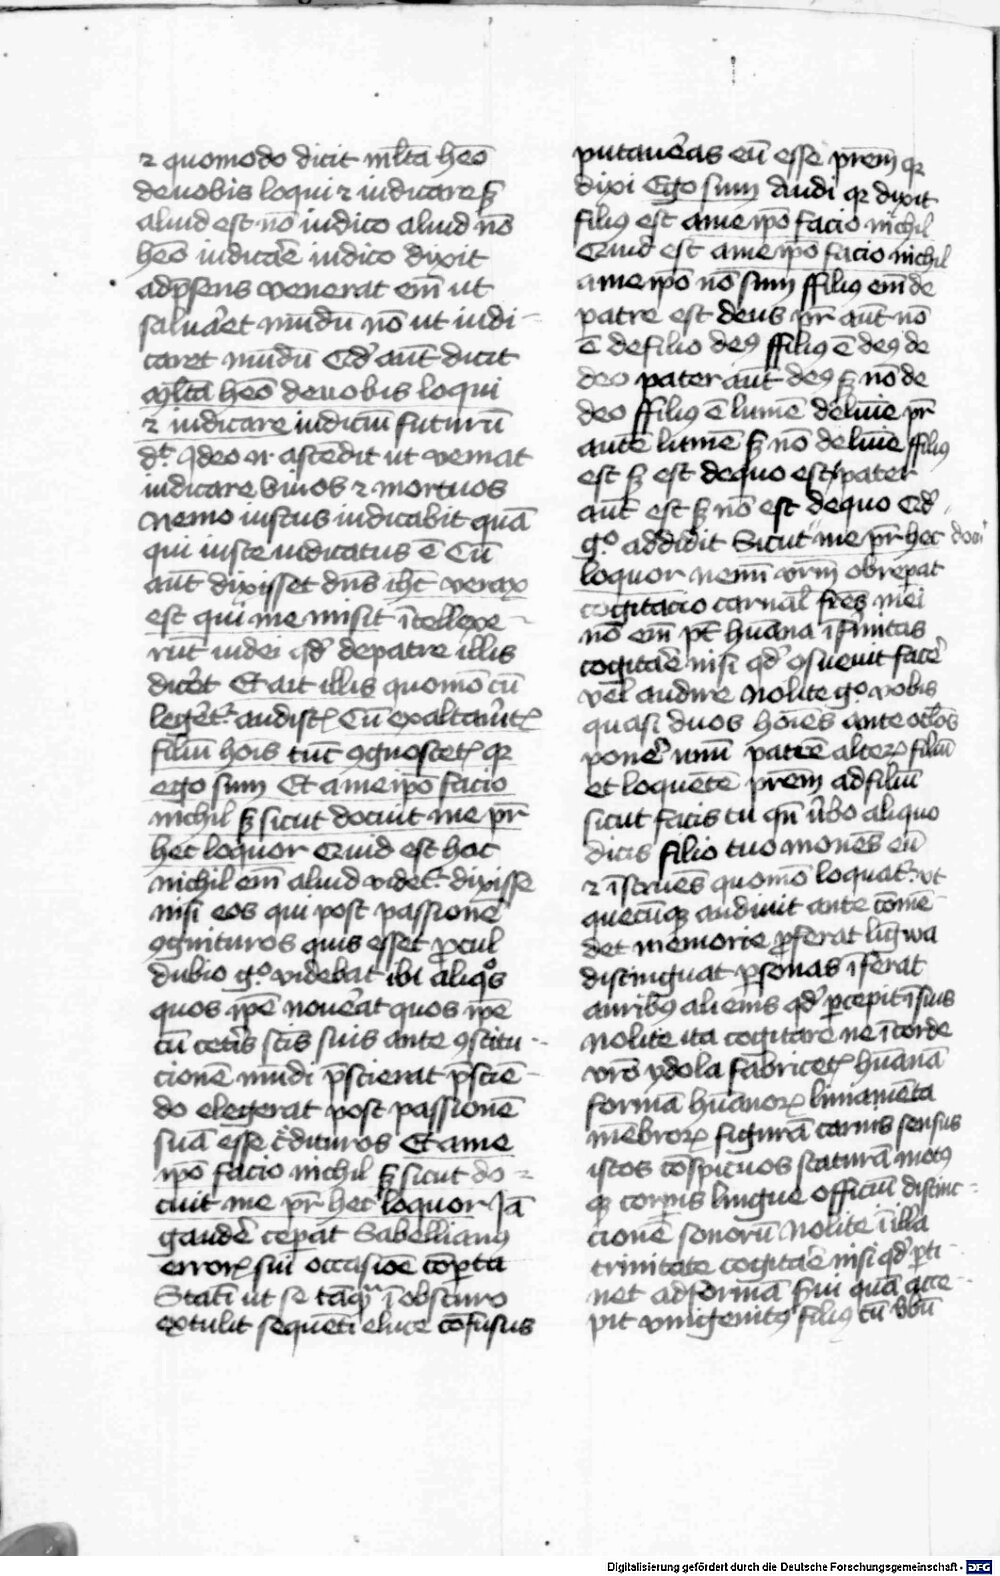 ⁊ quomodo dicit ml̄ta heō
de uobis loqui ⁊ iudicare ꝫ
aliud est nō iudico aliud nō
heō iudicar̄e iudico dixit
ad p̄sens venerat em̄ ut
saluar̄et mūdū nō ut iudi-
caret mūdū Qd' aūt dicit
Ml̄ta heō de uobis loqui
⁊ iudicare iudiciū futurū
d't ascēdit ut veniat
iudicare viuos ⁊ mortuos
Nemo iustus iudicabit quā
qui iuste iudicatus ē Cū
aūt dixisset dn̄s ih̄c verax
est qui me misit ītellexe-
rūt iudei qd' de patre illis
dicēt Et ait illis quomō cū
audistꝭ Cū exaltau'itꝭ
filiū hoīs tūc ꝯgnoscetꝭ qꝛ
ego sum Et a me ip̄o facio
nichil ꝫ sicut docuit me pr̄
hec loquor Quid est hoc
nichil em̄ aliud videt' dixisse
nisi eos qui post passionē
ꝯgnituros quis esset ꝓcul
dubio gͦ videbat ibi aliqͦs
quos ip̄e nouēat quos ip̄e
cū cet'is sc̄is suis ante ꝯstitu-
cionē mūdi p̄scierat p̄sciē-
do elegerat post passionē
suā esse c'dituros Et a me
ip̄o facio nichil ꝫ sicut do-
cuit me pr̄ hec loquor Jā
gaudē ceperat Sabellianꝰ
errorꝭ sui occasiōe cōꝑta
Statī ut se tāqᷓ ī obscuro
extulit sequēti e luce cōfusus
putau'eas eū esse pr̄em qꝛ
dixi Ego sum Audi qꝛ dixit
filiꝰ est a me ip̄o facio nichil
Quid est a me ip̄o facio nichil
a me ip̄o nō sum ffiliꝰ em̄ de
patre est deus pr̄ aūt nō
ē de filio deꝰ ffiliꝰ ē deꝰ de
deo pater aūt deꝰ ꝫ nō de
deo ffiliꝰ ē lumē de luīe pr̄
autē lumē ꝫ nō de luīe ffiliꝰ
est ꝫ est de quo est pater
aūt est ꝫ nō est de quo Qd'
gͦ addidit Sicut me pr̄ hec doc'
loquor nemī vr̄m obrepat
cogitacio carnal' fr̄es mei
nō em̄ pt̄ hūana īfirmitas
cogitar̄e nisi qd' ꝯsueuit fac'e
vel audire Nolite gͦ vobis
quasi duos hoīes ante oc'los
pon'e unū patrē alterꝝ filiū
et loquētē pr̄em ad filiū
sicut facis tu qn̄ v'bo aliquo
dicis filio tuo monēs eū
⁊ īstruēs quomō loquat' ut
quecūqꝫ audiuit ante cōmē-
det memorie ꝓferat lingwa
distinguat ꝑsonas īferat
auribꝰ alienis qd' ꝑcepit
Nolite ita cogitare ne ī corde
vr̄o ydola fabricetꝭ hūanā
formā hūanorꝝ liniamēta
mēbrorꝝ figurā carnis sensus
istos cōspicuos staturā motꝰ
qꝫ corꝑis lingue officiū distinc-
cionē sonorū Nolite ī illa
trinitate cogitar̄e nisi qd' ꝑti-
net ad formā s'ui quā acce-
pit vnigenitꝰ filiꝰ cū v'bū
Digitalisierung gefördert durch die Deutsche Forschungsgemeinschaft - DFG